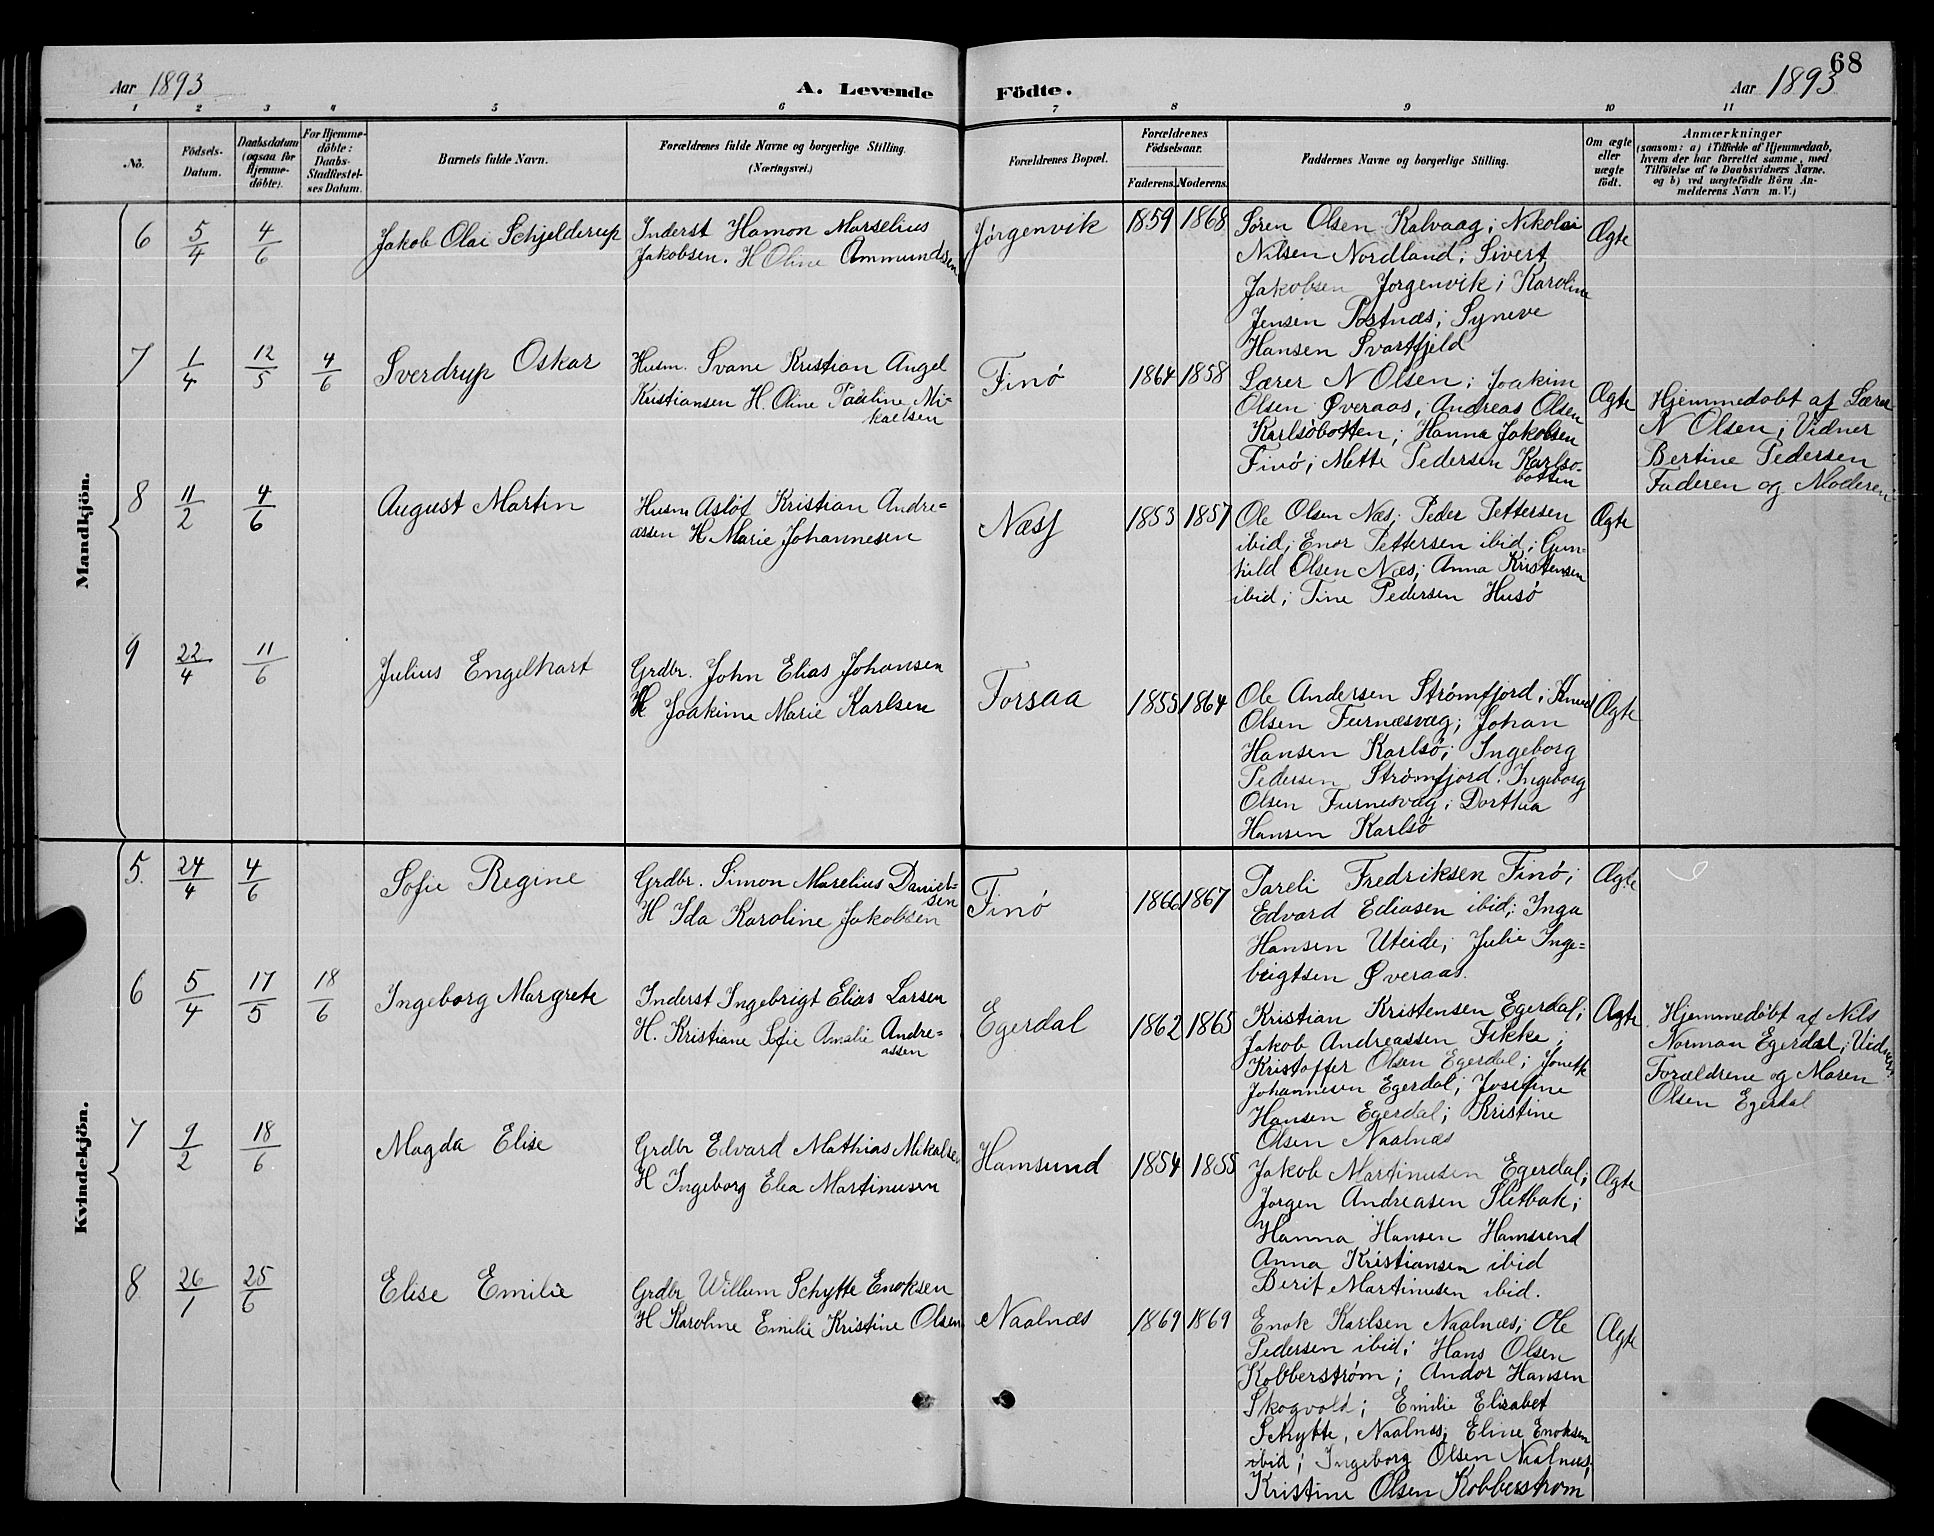 68
Aar 1893
A. Levende
Födte.
Aar 1893
1 2 3 4 5 6 7 8 9 10 11
No.
Födsels-
Datum.
Daabsdatum
(ogsaa for
Hjemme-
döbte).
For Hjemme-
döbte:
Daabs-
Stadfæstel-
ses Datum.
Barnets fulde Navn.
Forældrenes fulde Navne og borgerlige Stilling.
(Næringsvei.)
Forældrenes Bopæl.
Forældrenes
Födselsaar.
Faderens. Moderens.
Faddernes Navne og borgerlige Stilling.
Om ægte
eller
uægte
født.
Anmærkninger
(saasom: a) i Tilfælde af Hjemmedaab,
hvem der har forrettet samme, med
Tilföielse af to Daabsvidners Navne.
og b) ved uægtefödte Börn An-
melderens Navn m. V.)
Mandkjön.
6
5/4
4/6
Jakob Olai Schjelderup
Inderst Hamon Marselius
Jakobsen. H Oline Ammundsen
Jörgenvik
1859 1868
Sören Olsen Kalvaag; Nikolai
Nilsen Nordland; Sivert
Jakobsen Jörgenvik; Karoline
Jensen Postnæs; Syneve
Hansen Svartfjeld
Ægte
7
1/4
12/5
4/6
Sverdrup Oskar
Husm. Svane Kristian Angel
Kristiansen H. Oline Pauline Mi-
kaelsen
Finö
1864 1858
Lærer N Olsen; Joakim
Olsen Øveraas; Andreas Olsen
Karlsöbotten; Hanna Jakobsen
Finö; Mette Pedersen Karlsö-
botten
Ægte
Hjemmedöbt af Lærer
N Olsen; Vidner
Bertine Pedersen
Faderen og Moderen
8
11/2
4/6
August Martin
Husm Aslöf Kristian Andre=
assen H Marie Johannesen
Næsf
1853 1857
Ole Olsen Næs; Peder Pettersen
ibid; Enor Pettersen ibid; Gun-
hild Olsen Næs; Anna Kristensen
ibid; Tine Pedersen Husö
Ægte
9
22/4
11/6
Julius Engelhart
Grdbr. John Elias Johansen
H Joakime Marie Karlsen
Forsaa
1855 1864
Ole Andersen Strømfjord; Knud
Olsen Furnæsvag; Johan
Hansen Karlsö; Ingeborg
Pedersen Strømfjord. Ingeborg
Olsen Furnesvag; Dorthea
Hansen Karlsö
Ægte
Kvindekjön.
5.
24/4
4/6
Sofie Regine
Grdbr. Simon Marelius Daniel-
sen
H Ida Karoline Jakobsen
Finö
1866 1867
Pareli Fredriksen Finö;
Edvard Ediasen ibid; Inga
Hansen Uteide; Julie Inge=
brigtsen Øveraas.
Ægte
6
5/4
17/5
18/6
Ingeborg Margrete
Inderst Ingebrigt Elias Larsen
H. Kristiane Sofie Amalie Andre=
assen
Egerdal
1862 1865
Kristian Kristensen Egerdal;
Jakob Andreassen Fikke;
Kristoffer Olsen Egerdal; Jonette
Johannesen Egerdal; Josefine
Hansen Egerdal; Kristine
Olsen Naalnæs
Ægte
Hjemmedöbt af Nils
Norman Egerdal; Vidner
Forældrene og Maren
Olsen Egerdal
7
9/2
18/6
Magda Elise
Grdbr Edvard Mathias Mikalsen
H Ingeborg Elea Martinusen
Hamsund
1854 1855
Jakob Martinusen Egerdal;
Jorgen Andreasen Sletbak;
Hanna Hansen Hamsund
Anna Kristiansen ibid
Berit Martinusen ibid.
Ægte
8
26/1
25/6
Elise Emilie
Grdbr Willum Schytte Enoksen
H Karoline Emilie Kristine Olsen
Naalnæs
1869 1869
Enok Karlsen Naalnæs; Ole
Pedersen ibid; Hans Olsen
Kobberstrøm; Andor Hansen
Skogvold; Emilie Elisabet
Schytte, Naalnæs; Eline Enoksen
ibid; Ingeborg Olsen Naalnæs;
Kristine Olsen Kobberstrom
Ægte